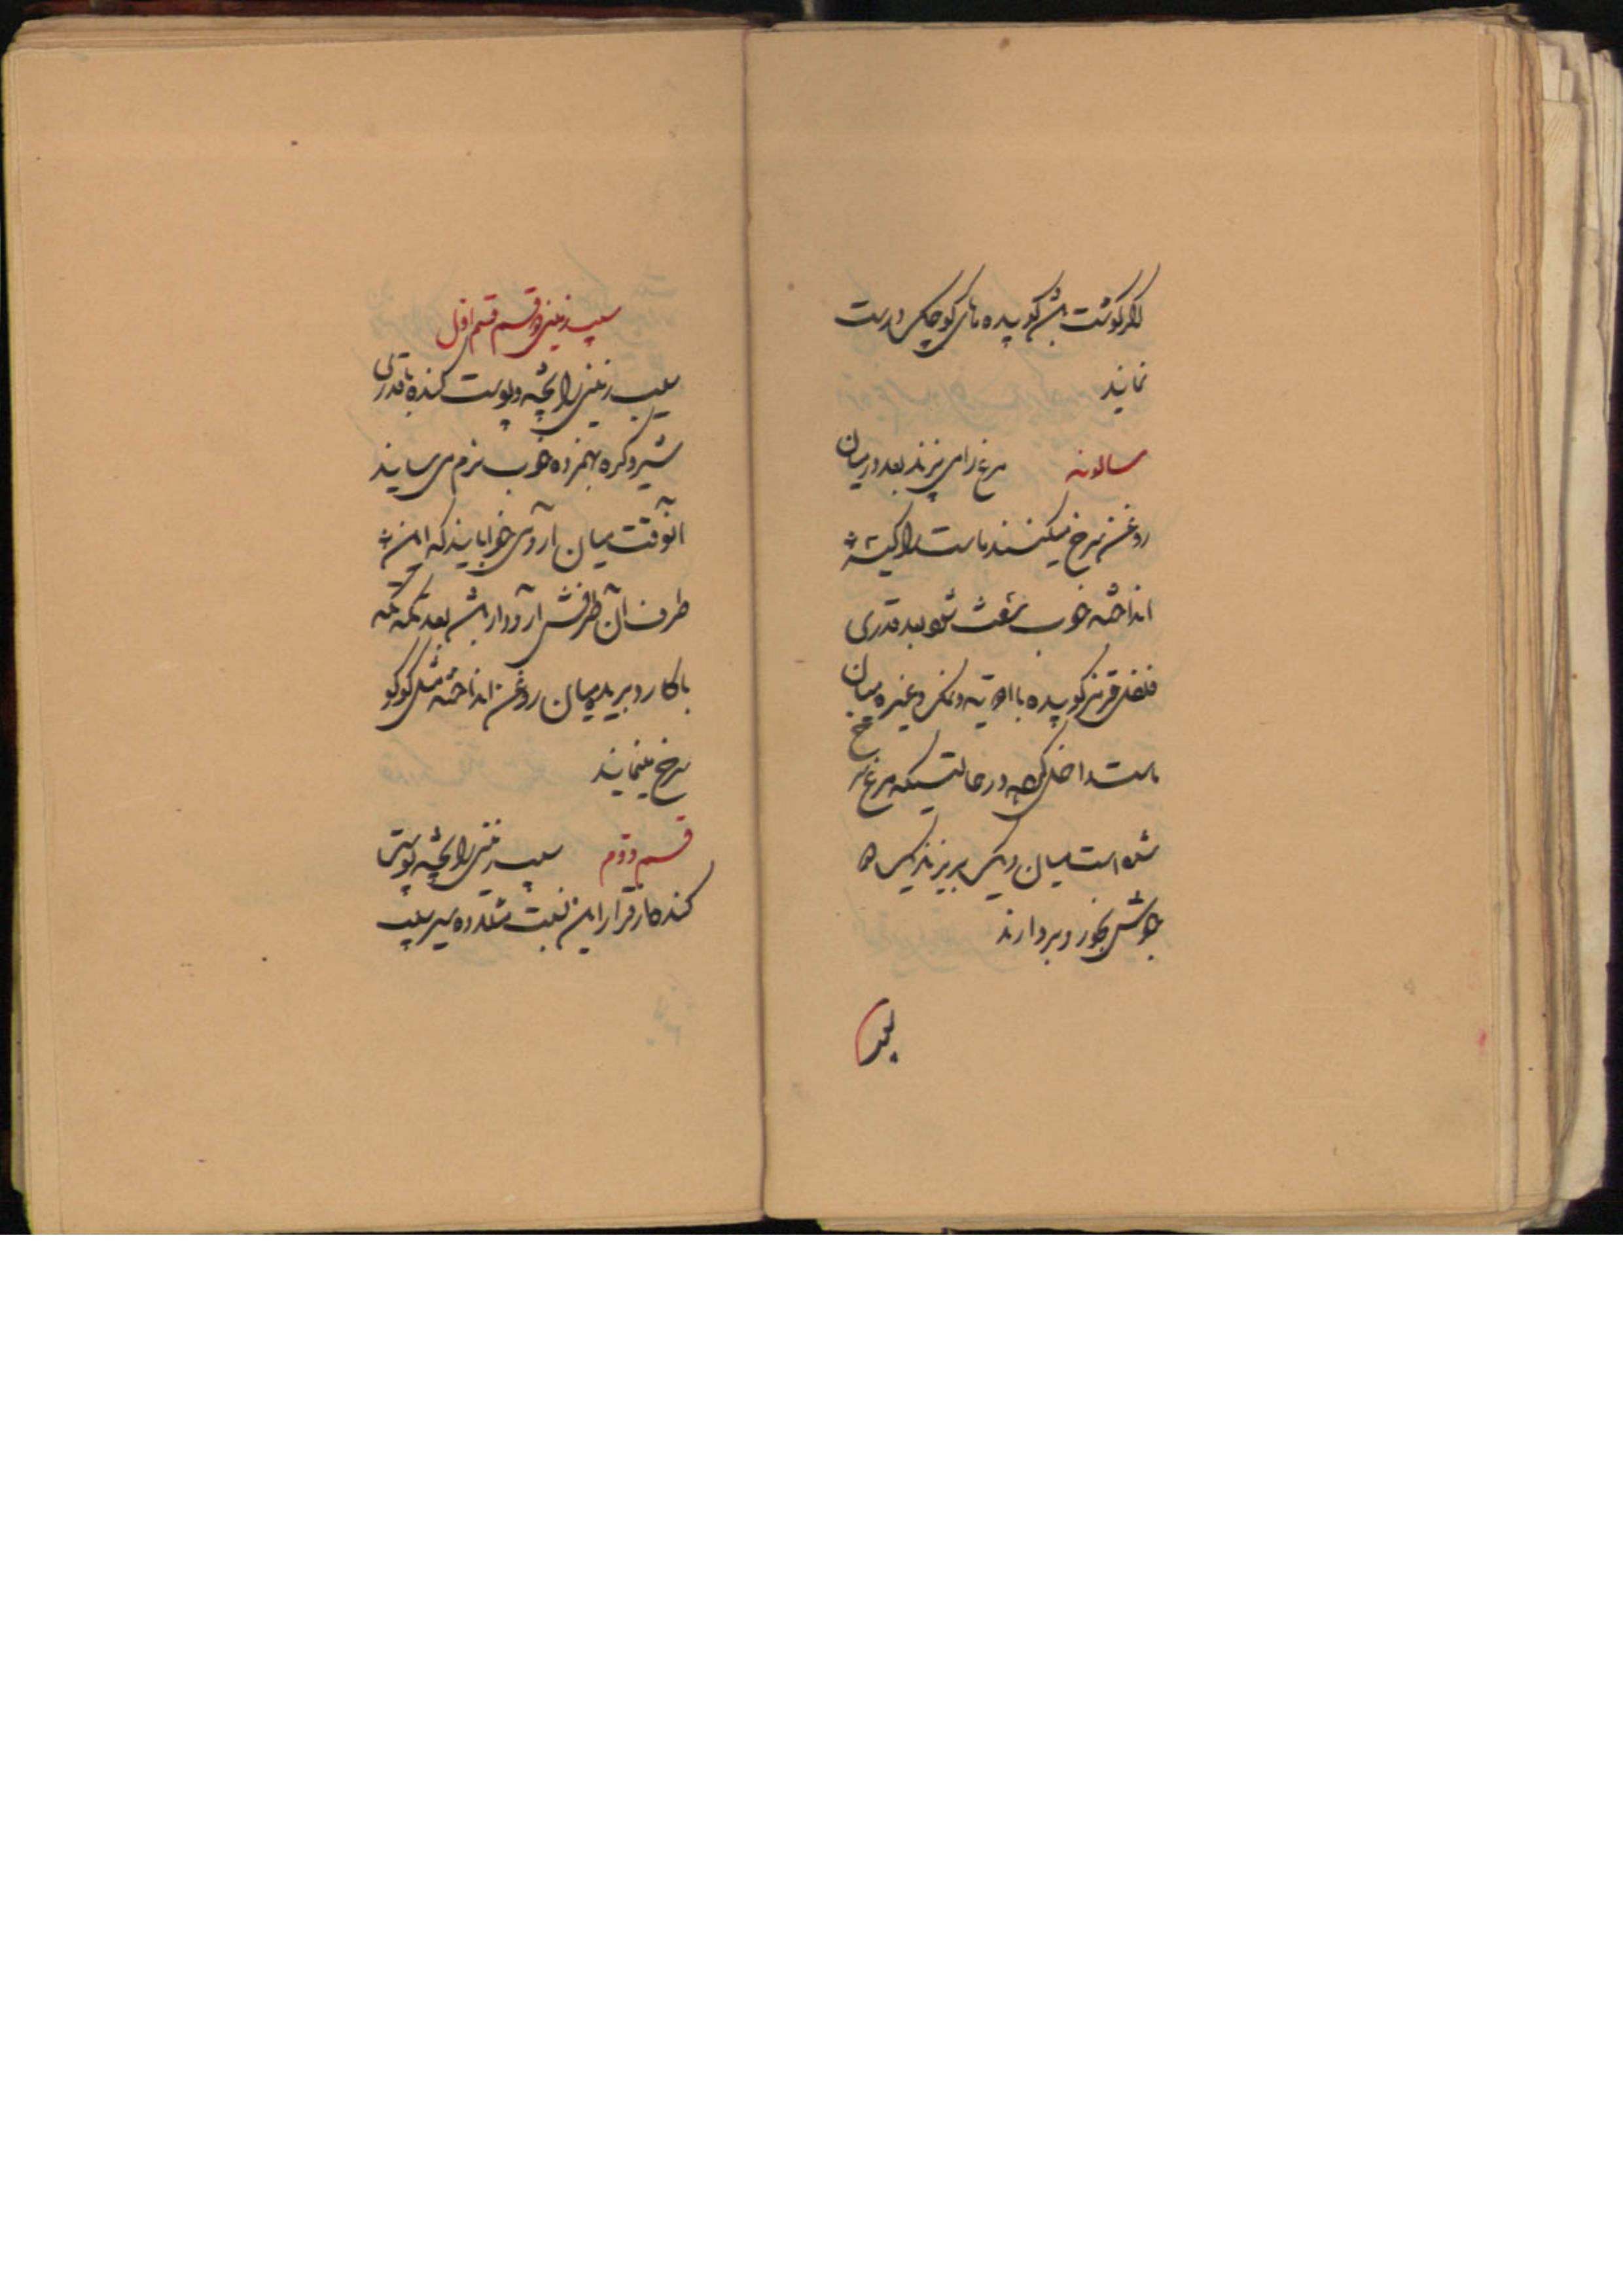 اگر گوشت باشد کوبیده های کوچک درست
نمایند
سالونه مرغ را می پزند بعد در میان
روغن سرخ میکنند ماست را کیسه
انداخته خوب سفت شود بعد قدری
فلفل قرمز کوبیده با ادویه و نمک و غیره میان
ماست داخل کرده در حالتیکه مرغ سرخ
شده است میان دیک بریزند یک
جوش بخورد بردارند
بعد
سیب زمینی دو قسم قسم اول
سیب زمینی را پخته و پوست کنده با قدری
شیر و کره بهم زده خوب نرم می سایند
آنوقت میان آرد می خوابانند که این
طرف آن طرفش آرد دار باشد بعد تکه تکه
با کارد بریده میان روغن انداخته مثل کوکو
سرخ مینمایند
قسم دوم سیب زمینی را پخته پوستش را
کنده از قرار این نسبت مثلا ده سیر سیب